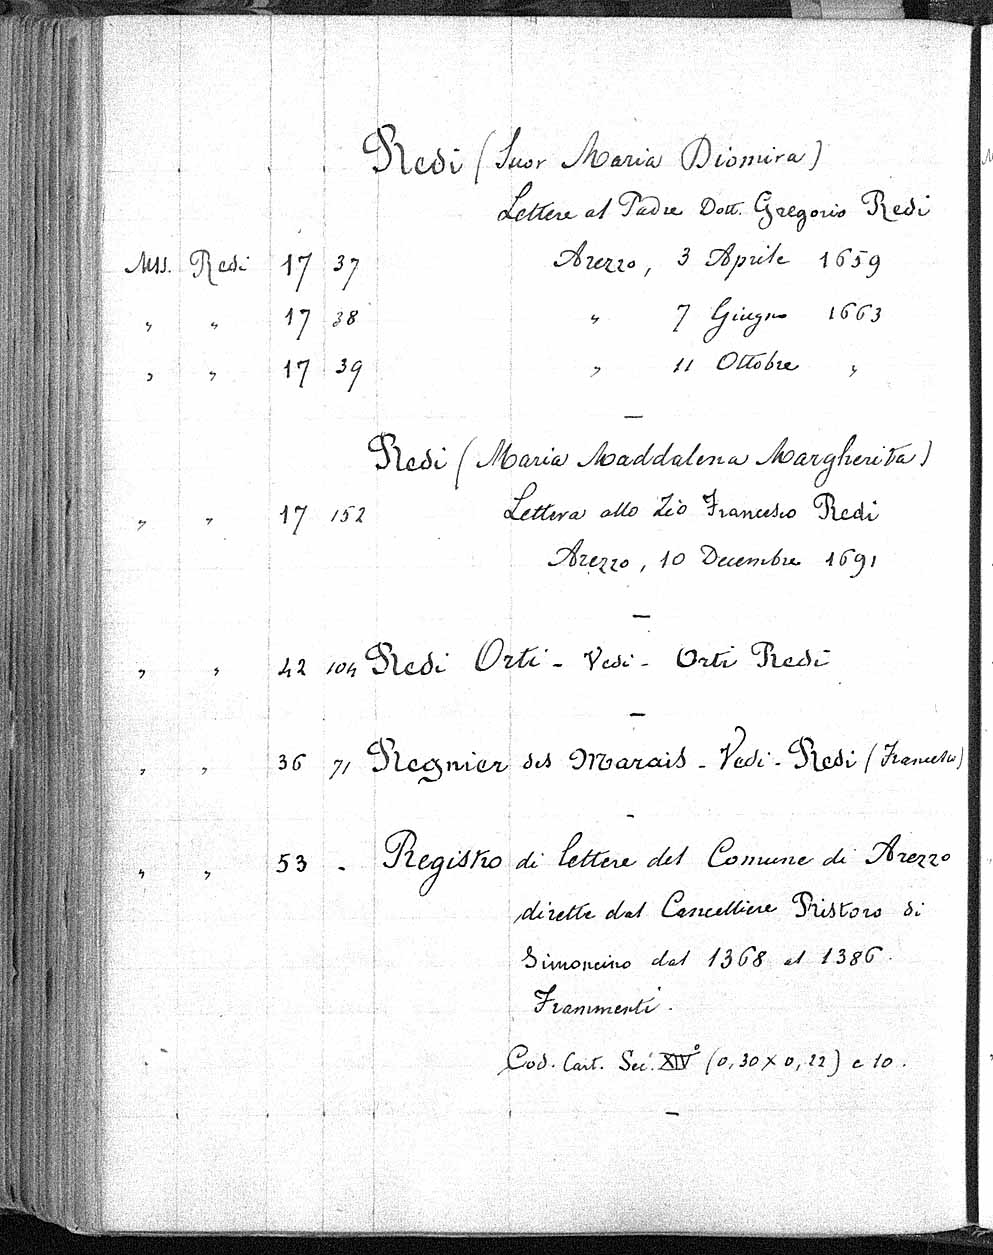 Redi (Suor Maria Diomira)
Lettere al Padre Dott. Gregorio Redi
Mss. Redi 17 37 Arezzo, 3 Aprile 1659
" " 17 38 " 7 Giugno 1663
" " 17 39 " 11 Ottobre "
—
Redi (Maria Maddalena Margherita)
" " 17 152 Lettera allo Zio Francesco Redi
Arezzo, 10 Decembre 1691
—
" " 42 104 Redi Orti - Vedi - Orti Redi
—
" " 36 71 Regnier des Marais - Vedi - Redi (Francesco)
-
" " 53 - Registro di lettere del Comune di Arezzo
dirette dal Cancelliere Ristoro di
Simoncino dal 1368 al 1386.
Frammenti.
Cod. Cart. Sec. XIV° (0,30 x 0,22) c 10.
—